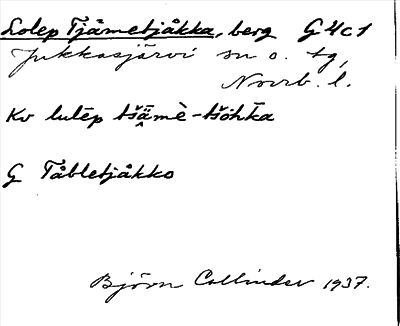 Lolep Tjåmetjåkka, berg G4c1
Jukkasjärvi sn o. tg,
Norrb. l.
Kv lulēp tšä̬mè-tšohka
G Tåbletjåkko
Björn Collinder 1937.